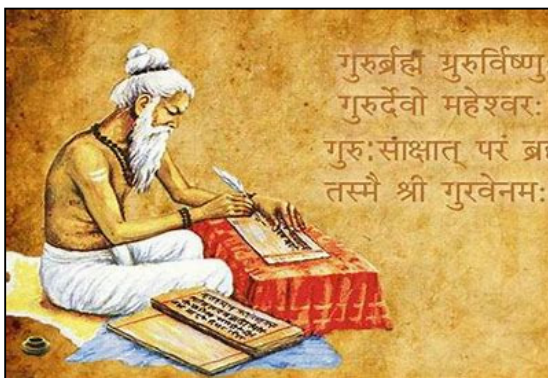 गुरुर्ब्रह्म ग्रुरुर्विष्णु
गुरुर्देवो महेश्वर:
गुरु:साक्षात् परं
तस्मै श्री गुरवेनम: